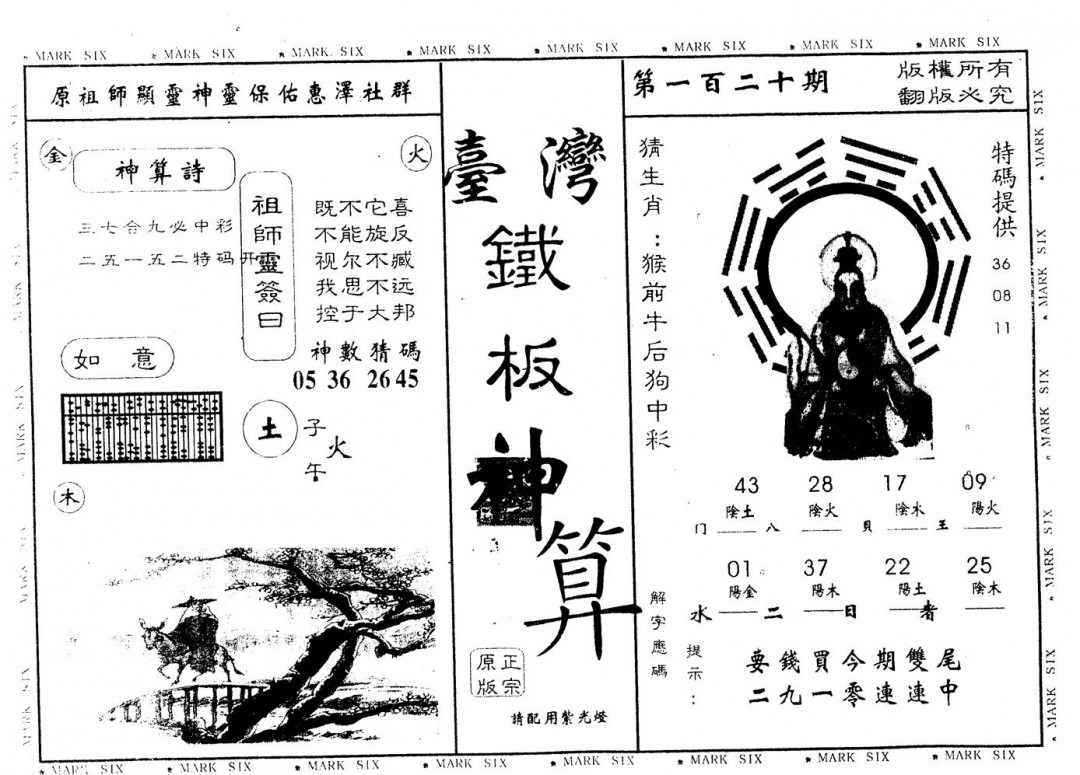 MARK SIX MARK SIX MARK SIX MARK SIX MARK SIX MARK SIX MARK SIX MARK SIX
原祖師顯靈神靈保佑惠澤社群
金
火
神算詩
三七合九必中彩
二五一五二特码开
祖師靈簽曰
既不它喜
不能旋反
视尔不臧
我思不远
控于大邦
神數猜碼
05 36 26 45
如意
土
子
火
午
木
臺灣
鐵
板
神
算
正宗
原版
請配用紫光燈
第一百二十期
版權所有
翻版必究
猜生肖:猴前牛后狗中彩
特碼提供
36
08
11
43 28 17 09
陰土 陰火 陰水 陽火
门 八 貝 王
01 37 22 25
陽金 陽木 陽土 陰木
水 二 日 者
解字應碼
提示:
要錢買今期雙尾
二九一零連連中
MARK SIX MARK SIX MARK SIX MARK SIX MARK SIX
MARK SIX MARK SIX MARK SIX MARK SIX MARK SIX
MARK SIX MARK SIX MARK SIX MARK SIX MARK SIX MARK SIX MARK SIX MARK SIX